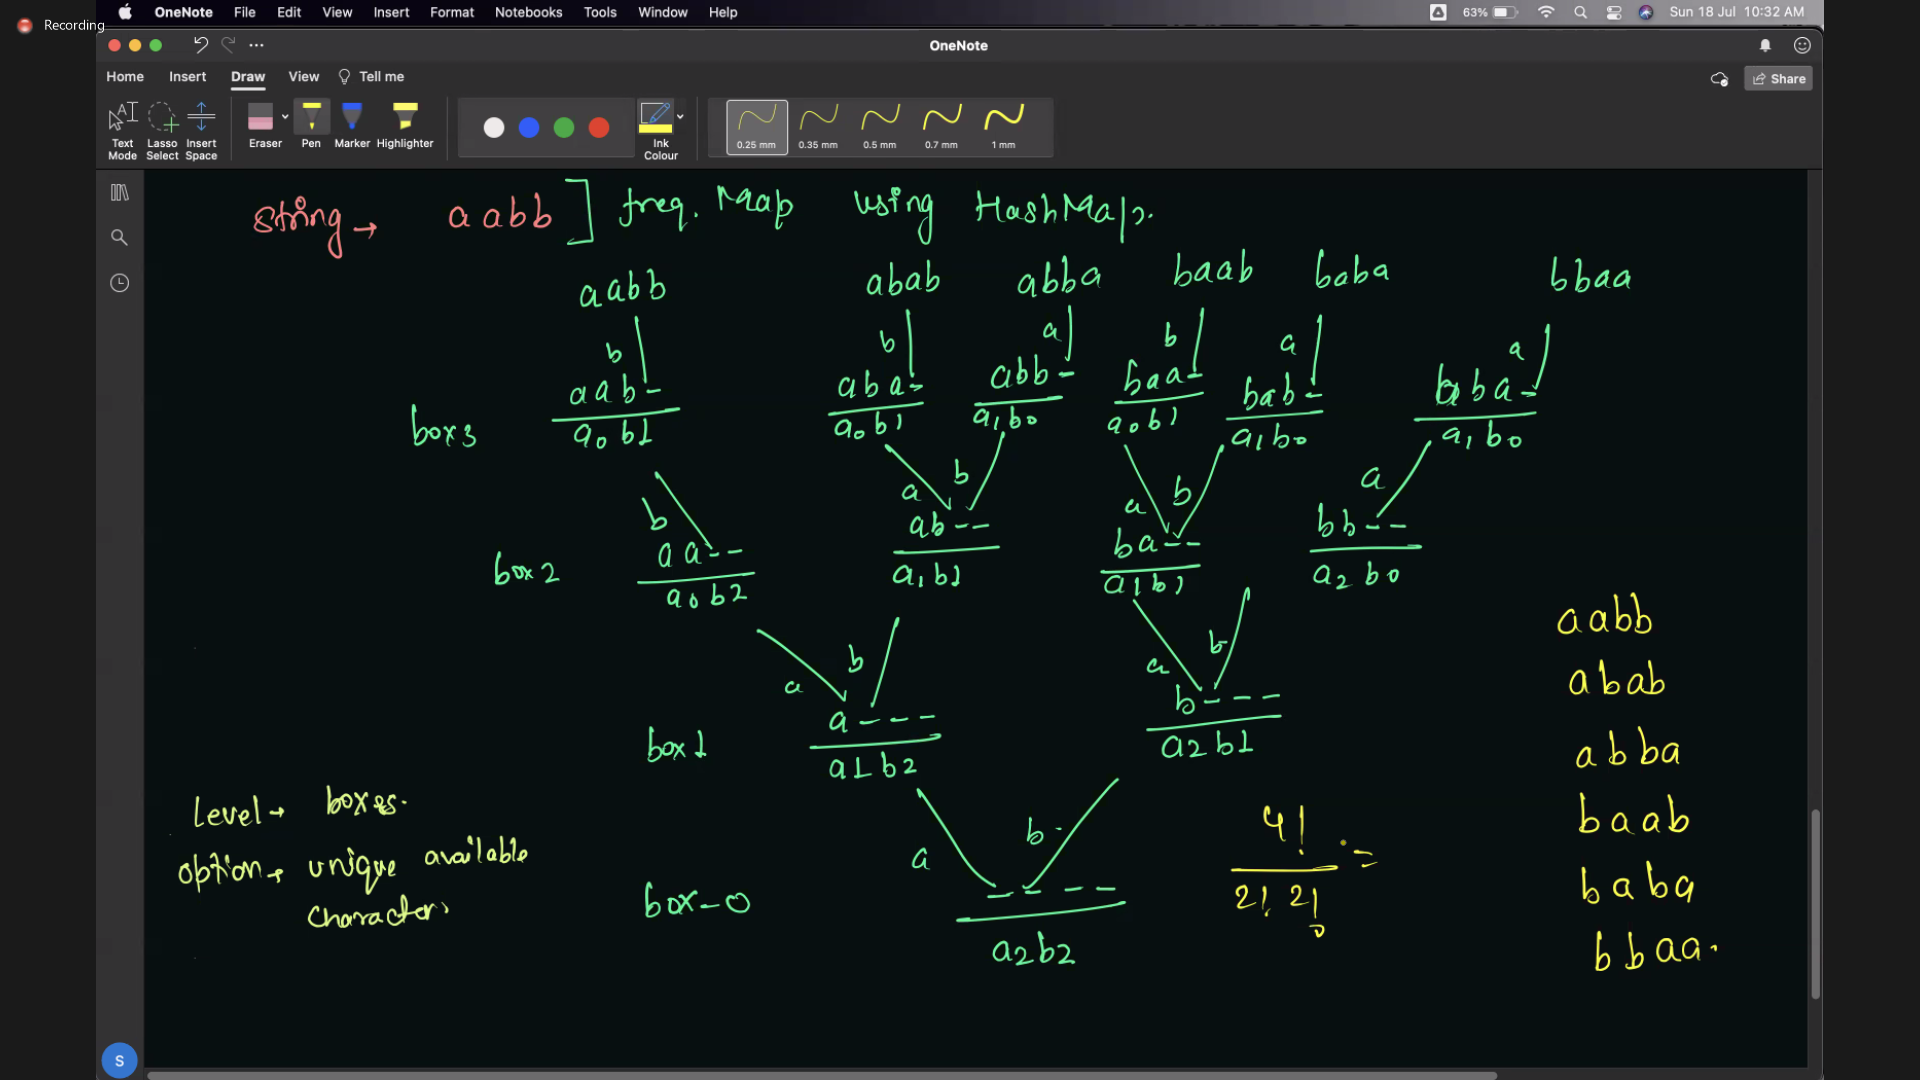 Recording
OneNote File Edit View Insert Format Notebooks Tools Window Help
63% Sun 18 Jul 10:32 AM
OneNote
Home Insert Draw View Tell me
Share
Text Mode
Lasso Select
Insert Space
Eraser
Pen
Marker
Highlighter
Ink Colour
0.25 mm
0.35 mm
0.5 mm
0.7 mm
1 mm
string → aabb ] freq. Map using HashMap.
aabb abab abba baab baba bbaa
b b a b a a
box 3 aab- aba- abb- baa- bab- bba-
a0 b1 a0 b1 a1 b0 a0 b1 a1 b0 a1 b0
b a b a b a
box 2 aa-- ab-- ba-- bb--
a0 b2 a1 b1 a1 b1 a2 b0
a b a b
box 1 a--- b---
a1 b2 a2 b1
a b.
box-0 ----
a2b2
level → boxes.
option → unique available
characters
4!
=
2! 2!
aabb
abab
abba
baab
baba
bbaa.
S